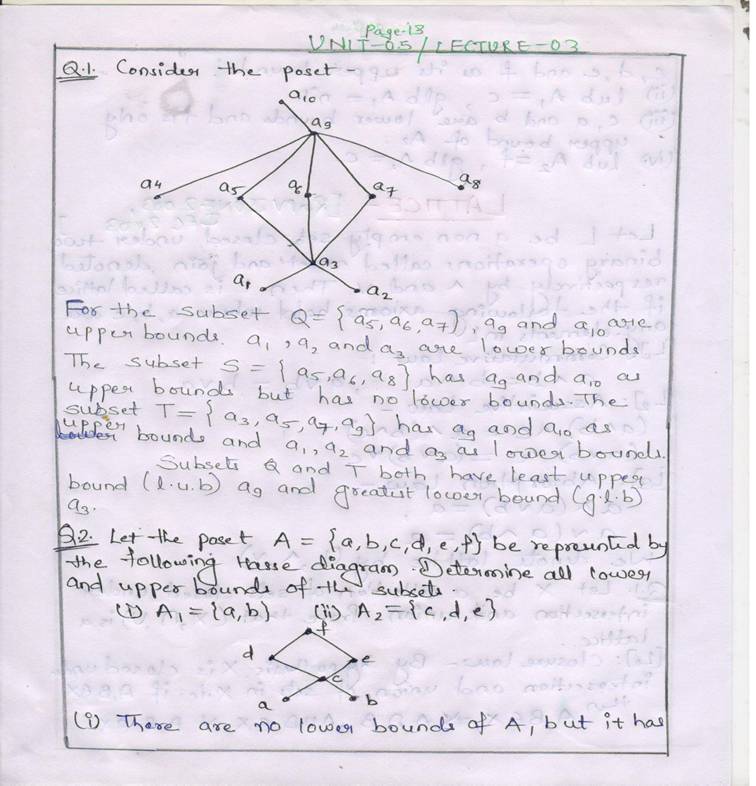 Page-13
UNIT-05/LECTURE-03
Q.1. Consider the poset -
a10
a9
a4 a5 a6 a7 a8
a3
a1 a2
For the subset Q = {a5, a6, a7}, a9 and a10 are
upper bounds. a1, a2 and a3 are lower bounds
The subset S = {a5, a6, a8} has a9 and a10 as
upper bounds but has no lower bounds. The
subset T = {a3, a5, a7, a9} has a9 and a10 as
upper
bounds and a1, a2 and a3 as lower bounds.
Subsets Q and T both have least upper
bound (l.u.b) a9 and greatest lower bound (g.l.b)
a3.
Q.2. Let the poset A = {a,b,c,d,e,f} be represented by
the following Hasse diagram. Determine all lower
and upper bounds of the subsets.
(i) A1 = {a,b} (ii) A2 = {c,d,e}
f
d e
c
a b
(i) There are no lower bounds of A, but it has